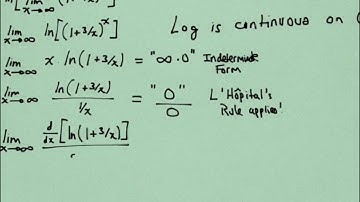 lim x→∞ ln[(1+3/x)^x]
Log is continuous on (
lim x→∞ x ln(1+3/x) = "∞·0" Indeterminate Form
lim x→∞ ln(1+3/x) / 1/x = "0"/0 L'Hôpital's Rule applies!
lim x→∞ d/dx[ln(1+3/x)]